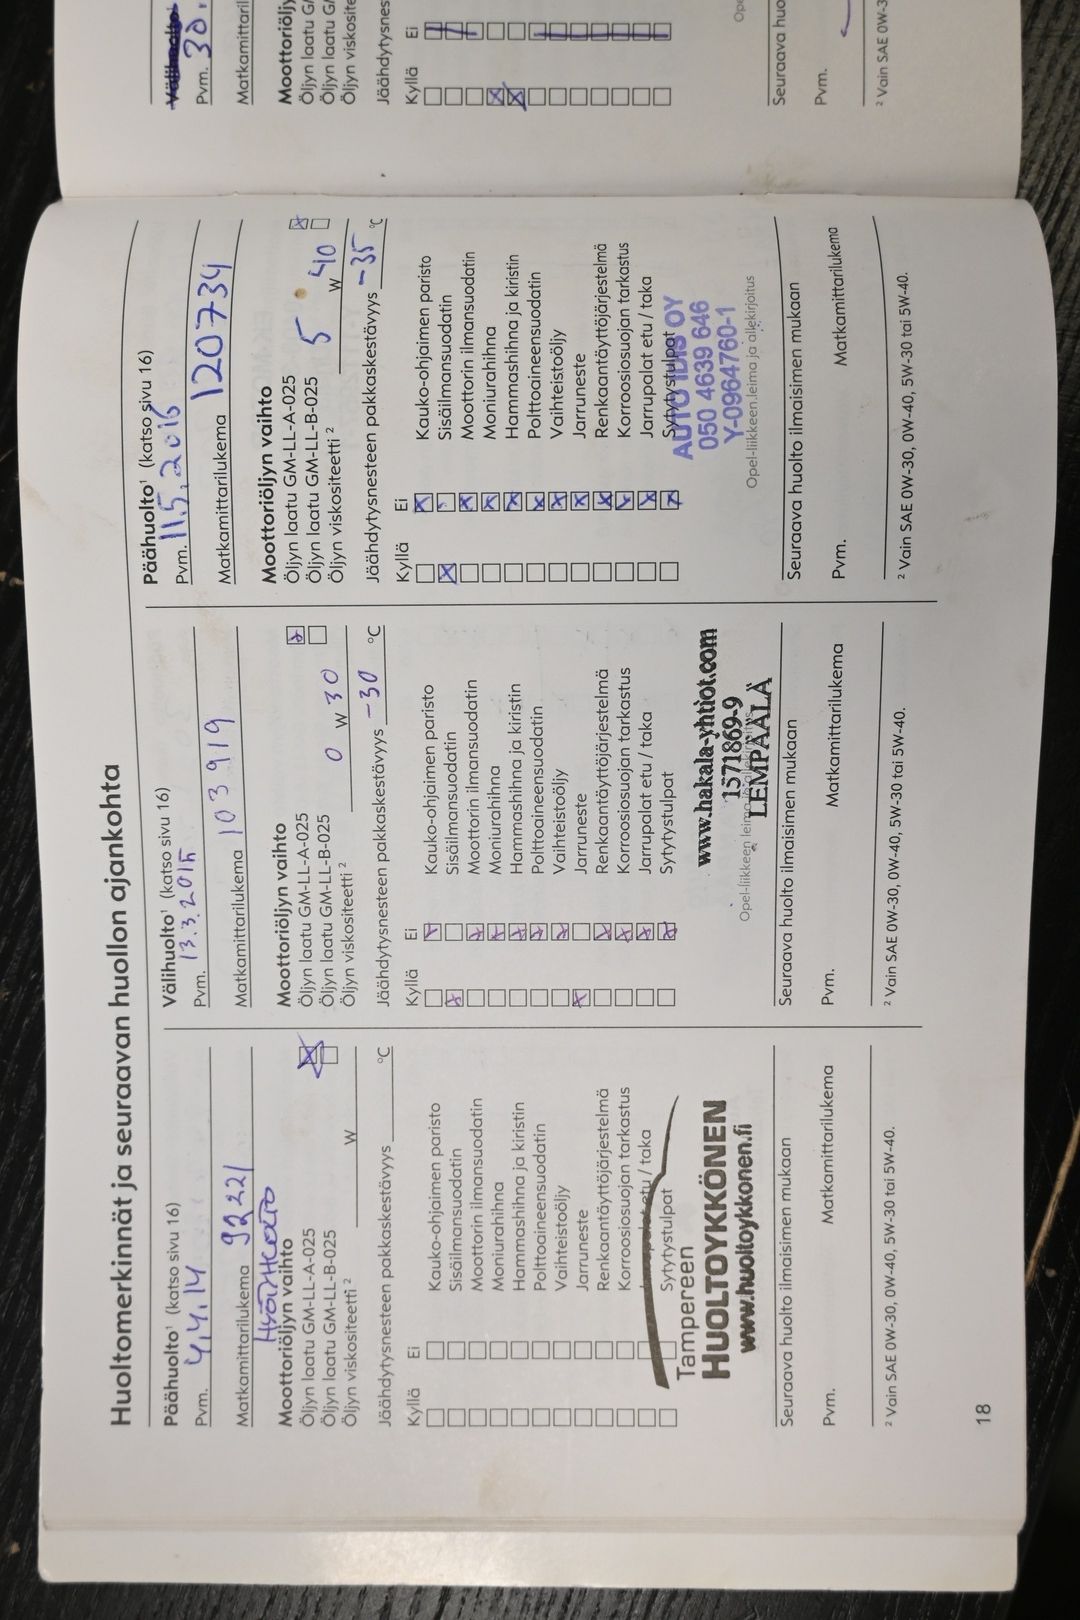 Huoltomerkinnät ja seuraavan huollon ajankohta
Päähuolto¹ (katso sivu 16)
Pvm. 4.4.14
Matkamittarilukema 92221
Moottoriöljyn vaihto
Öljyn laatu GM-LL-A-025
Öljyn laatu GM-LL-B-025
Öljyn viskositeetti ² W
Jäähdytysnesteen pakkaskestävyys °C
Kyllä Ei
Kauko-ohjaimen paristo
Sisäilmansuodatin
Moottorin ilmansuodatin
Moniurahihna
Hammashihna ja kiristin
Polttoaineensuodatin
Vaihteistoöljy
Jarruneste
Renkaantäyttöjärjestelmä
Korroosiosuojan tarkastus
etu / taka
Sytytystulpat
Tampereen
HUOLTOYKKÖNEN
www.huoltoykkonen.fi
Seuraava huolto ilmaisimen mukaan
Pvm. Matkamittarilukema
² Vain SAE 0W-30, 0W-40, 5W-30 tai 5W-40.
18
Välihuolto¹ (katso sivu 16)
Pvm. 13.3.2015
Matkamittarilukema 103919
Moottoriöljyn vaihto
Öljyn laatu GM-LL-A-025
Öljyn laatu GM-LL-B-025
Öljyn viskositeetti ² 0 W 30
Jäähdytysnesteen pakkaskestävyys -30 °C
Kyllä Ei
Kauko-ohjaimen paristo
Sisäilmansuodatin
Moottorin ilmansuodatin
Moniurahihna
Hammashihna ja kiristin
Polttoaineensuodatin
Vaihteistoöljy
Jarruneste
Renkaantäyttöjärjestelmä
Korroosiosuojan tarkastus
Jarrupalat etu / taka
Sytytystulpat
www.hakala-yhtiot.com
1571869-9
LEMPÄÄLÄ
Opel-liikkeen leima ja allekirjoitus
Seuraava huolto ilmaisimen mukaan
Pvm. Matkamittarilukema
² Vain SAE 0W-30, 0W-40, 5W-30 tai 5W-40.
Päähuolto¹ (katso sivu 16)
Pvm. 11.5.2016
Matkamittarilukema 120734
Moottoriöljyn vaihto
Öljyn laatu GM-LL-A-025
Öljyn laatu GM-LL-B-025
Öljyn viskositeetti ² 5 W 40
Jäähdytysnesteen pakkaskestävyys -35 °C
Kyllä Ei
Kauko-ohjaimen paristo
Sisäilmansuodatin
Moottorin ilmansuodatin
Moniurahihna
Hammashihna ja kiristin
Polttoaineensuodatin
Vaihteistoöljy
Jarruneste
Renkaantäyttöjärjestelmä
Korroosiosuojan tarkastus
Jarrupalat etu / taka
Sytytystulpat
AUTO IDIS OY
050 4639 646
Y-0964760-1
Opel-liikkeen leima ja allekirjoitus
Seuraava huolto ilmaisimen mukaan
Pvm. Matkamittarilukema
² Vain SAE 0W-30, 0W-40, 5W-30 tai 5W-40.
Pvm. 30.
Moottoriöljy
Öljyn laatu
Öljyn laatu
Kyllä Ei
Seuraava
Pvm.
² Vain SAE